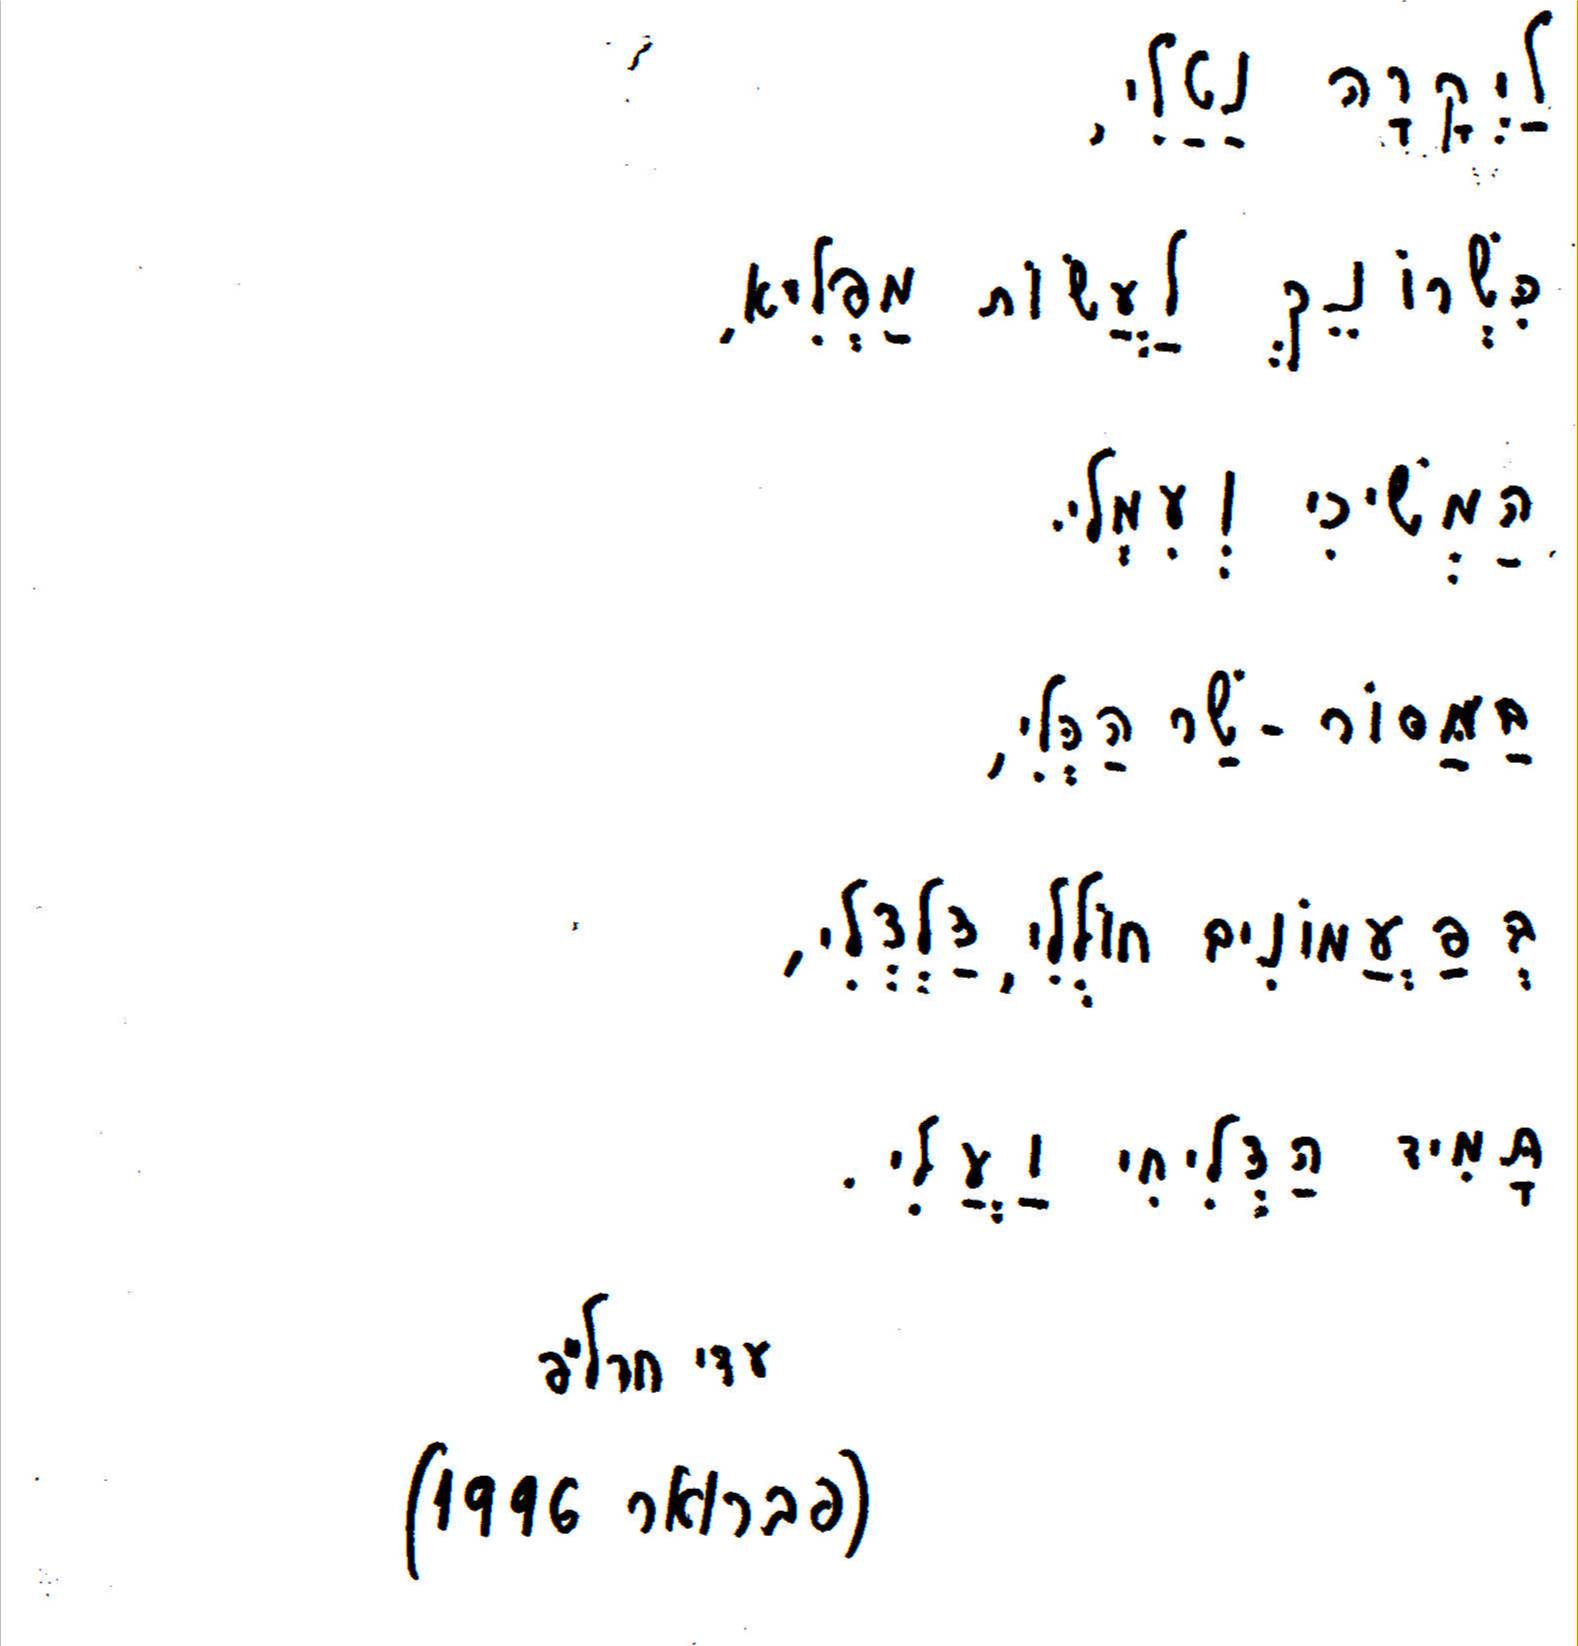 לַיְקָרָה נַטַלִי,
כִּשְׁרוֹנֵךְ לַעֲשׂוֹת מַפְלִיא,
הַמְשִׁיכִי וְעִמְלִי.
בַּמַּסּוֹר - שַׁר הַכְּלִי,
בְּפַּעֲמוֹנִים חוֹלְלִי, צַלְצְלִי,
תָּמִיד הַצְלִיחִי וַעֲלִי.
עדי חרל"פ
(פברואר 1996)